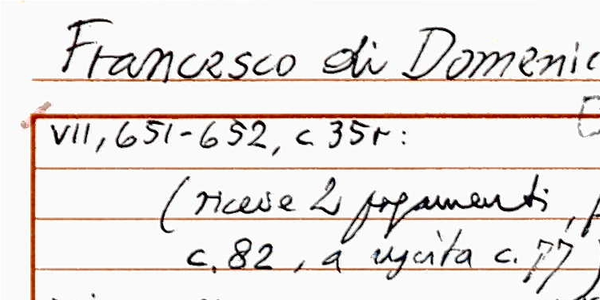 Francesco di Domenic
VII, 651-652, c 35r:
(riceve 2 pagamenti,
c. 82, a uscita c. 77)